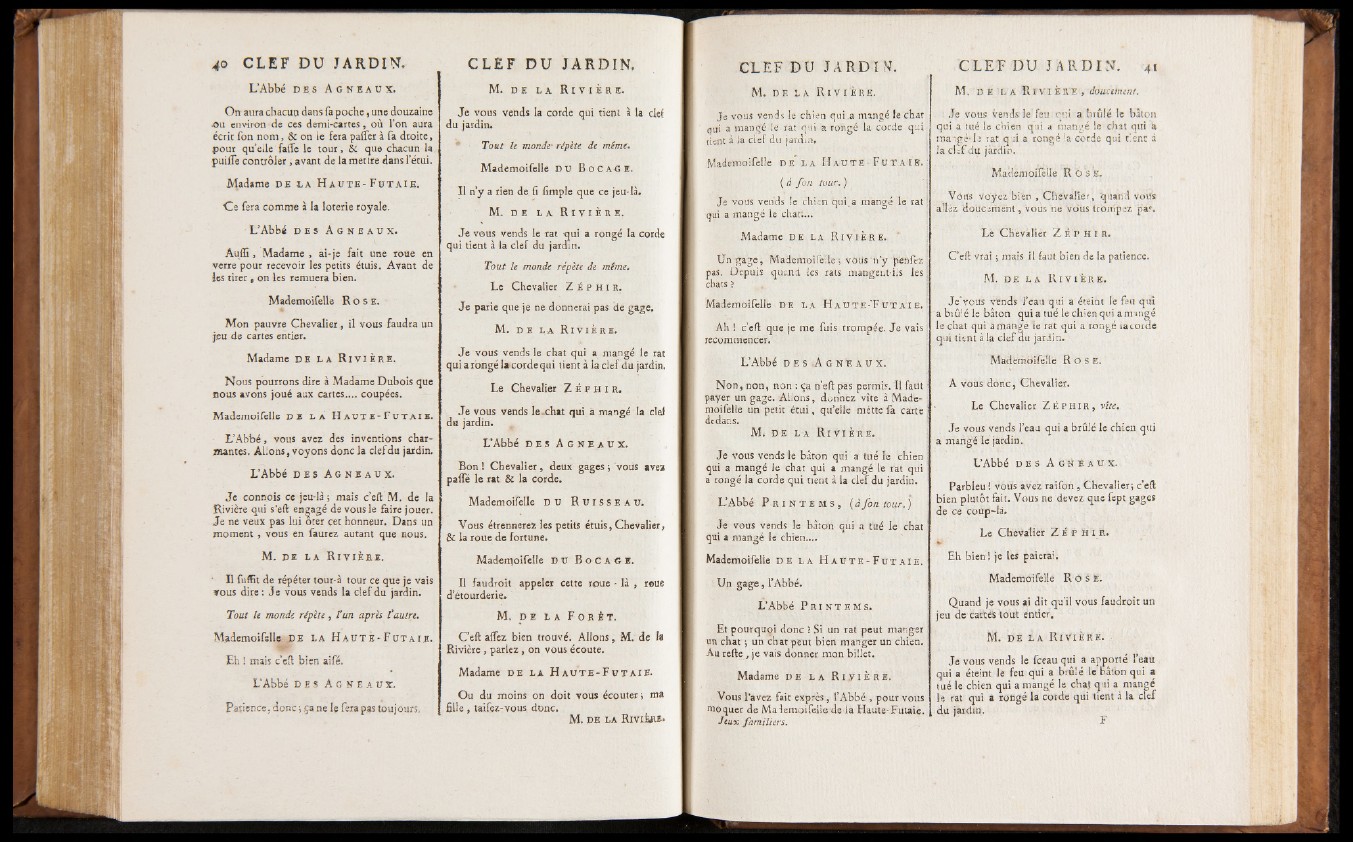 40 CLEF DU JARDIN.
L'Abbé DES AGNEAUX.
On aura chacun dans ſa poche, une douzaine
ou environ de ces demi-cartes, où l'on aura
écrit ſon nom, & on le fera paſſer à ſa droite,
pour qu'elle faſſe le tour, & que chacun la
puiſſe contrôler, avant de la mettre dans l'étui.
Madame DE LA HAUTE-FUTAIE.
Ce ſera comme à la loterie royale.
L'Abbé DES AGNEAUX.
Auſſi, Madame, ai-je fait une roue en
verre pour recevoir les petits étuis. Avant de
les tirer, on les remuera bien.
Mademoiſelle ROSE.
Mon pauvre Chevalier, il vous faudra un
jeu de cartes entier.
Madame DE LA RIVIÈRE.
Nous pourrons dire à Madame Dubois que
nous avons joué aux cartes.... coupées.
Mademoiſelle DE LA HAUTE-FUTAIE.
L'Abbé, vous avez des inventions char-
mantes. Allons, voyons donc la clef du jardin.
L'Abbé DES AGNEAUX.
Je connois ce jeu-là; mais c'eſt M. de la
Rivière qui s'eſt engagé de vous le faire jouer.
Je ne veux pas lui ôter cet honneur. Dans un
moment, vous en ſaurez autant que nous.
M. DE LA RIVIÈRE.
Il ſuffit de répéter tour-à tour ce que je vais
vous dire: Je vous vends la clef du jardin.
Tout le monde répète, l'un après l'autre.
Mademoiſelle DE LA HAUTE-FUTAIE.
Eh! mais c'eſt bien aiſé.
L'Abbé DES AGNEAUX.
Patience, donc; ça ne le ſera pas toujours.
CLEF DU JARDIN.
M. DE LA RIVIÈRE.
Je vous vends la corde qui tient à la clef
du jardin.
Tout le monde répète de même.
Mademoiſelle DU BOCAGE.
Il n'y a rien de ſi ſimple que ce jeu-là.
M. DE LA RIVIERE.
Je vous vends le rat qui a rongé la corde
qui tient à la clef du jardin.
Tout le monde répète de même.
Le Chevalier ZÉPHIR.
Je parie que je ne donnerai pas de gage.
M. DE LA RIVIÈRE.
Je vous vends le chat qui a mangé le rat
qui a rongé la corde qui tient à la clef du jardin.
Le Chevalier ZÉPHIR.
Je vous vends le chat qui a mangé la clef
du jardin.
L'Abbé DES AGNEAUX.
Bon! Chevalier, deux gages; vous avez
paſſé le rat & la corde.
Mademoiſelle DU RUISSEAU.
Vous étrennerez les petits étuis, Chevalier,
& la roue de fortune.
Mademoiſelle DU BOCAGE.
Il faudroit appeler cette roue-là, roue
d'étourderie.
M. DE LA FORÊT.
C'eſt aſſez bien trouvé. Allons, M. de la
Rivière, parlez, on vous écoute.
Madame DE LA HAUTE-FUTAIE.
Ou du moins on doit vous écouter; ma
fille, taiſez-vous donc.
M. DE LA RIVIÈRE.
CLEF DU JARDIN.
M. DE LA RIVIÈRE.
Je vous vends le chien qui a mangé le chat
qui a mangé le rat qui a rongé la corde qui
tient à la clef du jardin,
Mademoiſelle DE LA HAUTE-FUTAIE.
(à ſon tour.)
Je vous vends le chien qui a mangé le rat
qui a mangé le chat....
Madame DE LA RIVIÈRE.
Un gage, Mademoiſelle; vous n'y penſez
pas. Depuis quand les rats mangent-ils les
chats?
Mademoiſelle DE LA HAUTE-FUTAIE.
Ah! c'eſt que je me ſuis trompée. Je vais
recommencer.
L'Abbé DES AGNEAUX.
Non, non, non: ça n'eſt pas permis. Il faut
payer un gage. Allons, donnez vîte à Made-
moiſelle un petit étui, qu'elle mette ſa carte
dedans.
M. DE LA RIVIÈRE.
Je vous vends le bâton qui a tué le chien
qui a mangé le chat qui a mangé le rat qui
a rongé la corde qui tient à la clef du jardin.
L'Abbé PRINTEMS, (à ſon tour.)
Je vous vends le bâton qui a tué le chat
qui a mangé le chien....
Mademoiſelle DE LA HAUTE-FUTAIE.
Un gage, l'Abbé.
L'Abbé PRINTEMS.
Et pourquoi donc? Si un rat peut manger
un chat; un chat peut bien manger un chien.
Au reſte, je vais donner mon billet.
Madame DE LA RIVIÈRE.
Vous l'avez fait exprès, l'Abbé, pour vous
moquer de Mademoiſelle de la Haute-Futaie.
Jeux familiers.
CLEF DU JARDIN. 41
M. DE LA RIVIÈRE, doucement.
Je vous vends le feu qui a brûlé le bâton
qui a tué le chien qui a mangé le chat qui a
mangé le rat qui a rongé la corde qui tient à
la clef du jardin.
Mademoiſelle ROSE.
Vous voyez bien, Chevalier, quand vous
allez doucement, vous ne vous trompez pas.
Le Chevalier ZÉPHIR.
C'eſt vrai; mais il faut bien de la patience.
M. DE LA RIVIÈRE.
Je vous vends l'eau qui a éteint le feu qui
a brûlé le bâton qui a tué le chien qui a mangé
le chat qui a mangé le rat qui a rongé la corde
qui tient à la clef du jardin.
Mademoiſelle ROSE.
A vous donc, Chevalier.
Le Chevalier ZÉPHIR, vîte.
Je vous vends l'eau qui a brûlé le chien qui
a mangé le jardin.
L'Abbé DES AGNEAUX.
Parbleu! vous avez raiſon, Chevalier; c'eſt
bien plutôt fait. Vous ne devez que ſept gages
de ce coup-là.
Le Chevalier ZÉPHIR.
Eh bien! je les paierai.
Mademoiſelle ROSE.
Quand je vous ai dit qu'il vous faudroit un
jeu de cartes tout entier.
M. DE LA RIVIÈRE.
Je vous vends le ſceau qui a apporté l'eau
qui a éteint le feu qui a brûlé le bâton qui a
tué le chien qui a mangé le chat qui a mangé
le rat qui a rongé la corde qui tient à la clef
du jardin.
F